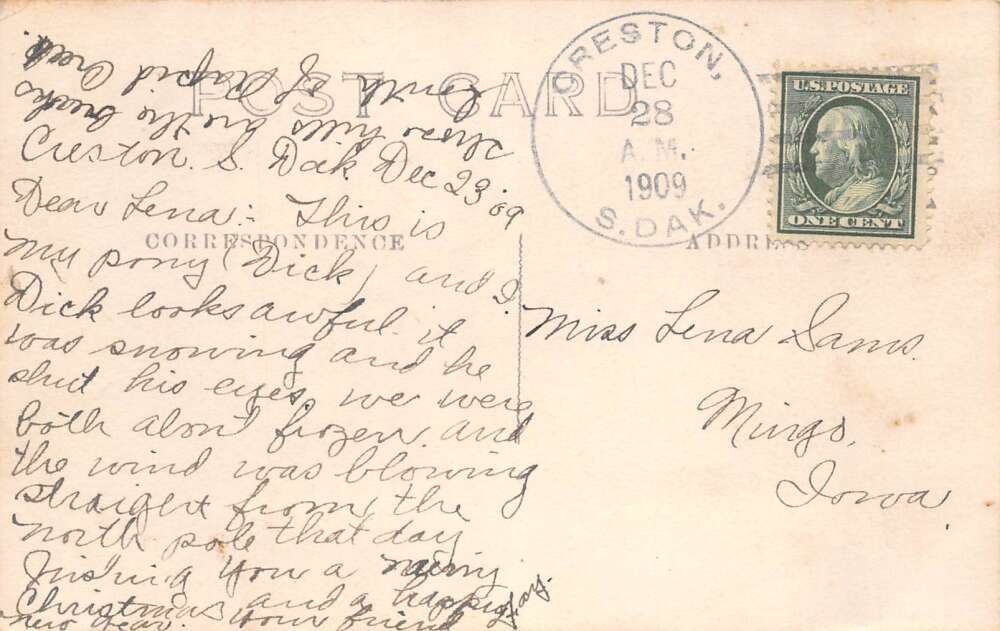 POST CARD
Creston. S. Dak Dec 23 '09
Dear Lena:- This is
CORRESPONDENCE
my pony (Dick) and I.
Dick looks awful. it
was snowing and he
shut his eyes. we were
both about frozen. and
the wind was blowing
straight from the
north pole that day
Wishing you a merry
Christmas and a happy
new year. Your friend
those hills are the breaks
north of Rapid Creek.
CRESTON,
DEC
28
A.M.
1909
S. DAK.
U.S. POSTAGE
ONE CENT
ADDRESS
Miss Lena Sams.
Mingo,
Iowa